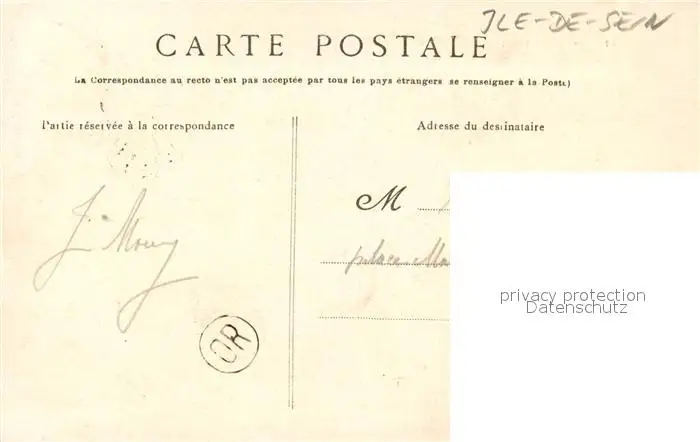 ILE-DE-SEIN
CARTE POSTALE
La Correspondance au recto n'est pas acceptée par tous les pays étrangers se renseigner à la Poste)
Partie réservée à la correspondance
Adresse du destinataire
M
place
OR
privacy protection
Datenschutz